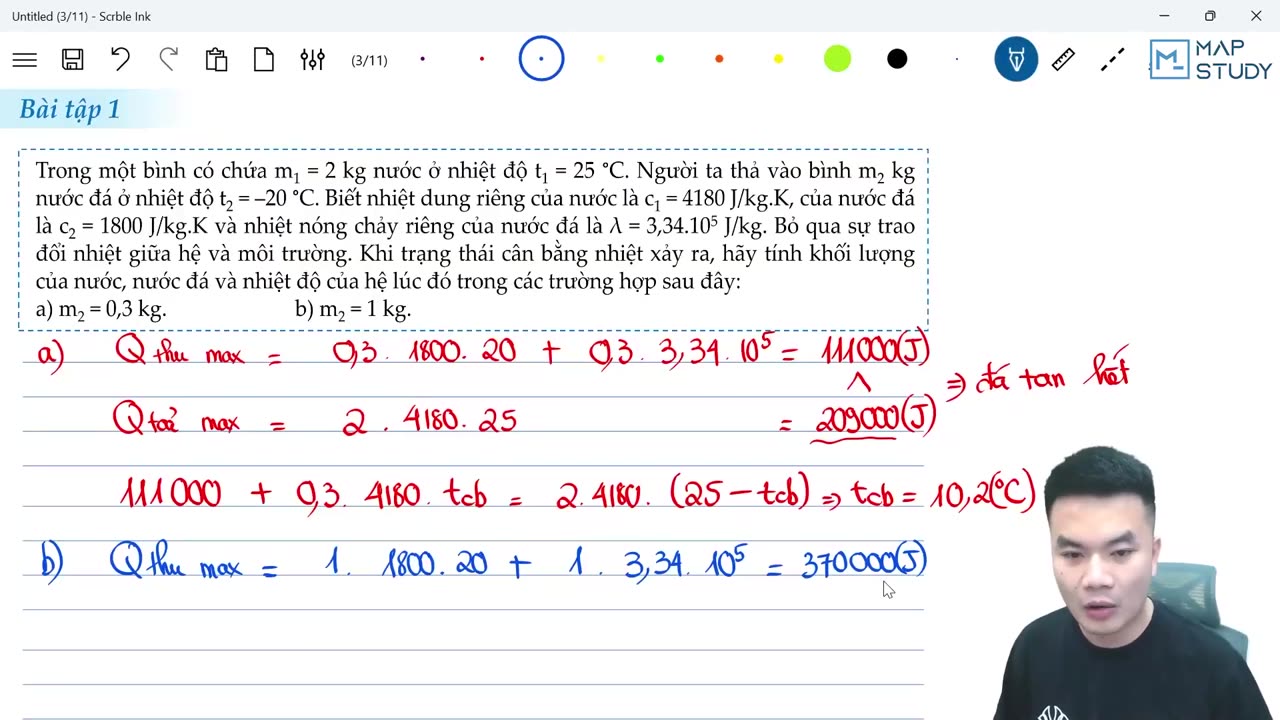 Untitled (3/11) - Scrble Ink
(3/11)
MAP
STUDY
Bài tập 1
Trong một bình có chứa m₁ = 2 kg nước ở nhiệt độ t₁ = 25 °C. Người ta thả vào bình m₂ kg
nước đá ở nhiệt độ t₂ = –20 °C. Biết nhiệt dung riêng của nước là c₁ = 4180 J/kg.K, của nước đá
là c₂ = 1800 J/kg.K và nhiệt nóng chảy riêng của nước đá là λ = 3,34.10⁵ J/kg. Bỏ qua sự trao
đổi nhiệt giữa hệ và môi trường. Khi trạng thái cân bằng nhiệt xảy ra, hãy tính khối lượng
của nước, nước đá và nhiệt độ của hệ lúc đó trong các trường hợp sau đây:
a) m₂ = 0,3 kg. b) m₂ = 1 kg.
a) Q thu max = 0,3 . 1800 . 20 + 0,3 . 3,34 . 10⁵ = 111000(J)
^ ⇒ đá tan hết
Q toả max = 2 . 4180 . 25 = 209000(J)
111000 + 0,3 . 4180 . tcb = 2.4180. (25 – tcb) ⇒ tcb = 10,2(°C)
b) Q thu max = 1 . 1800 . 20 + 1 . 3,34 . 10⁵ = 370000(J)